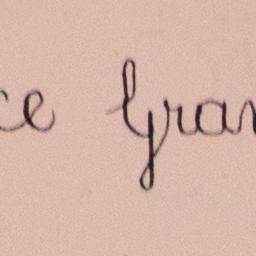 ce Gran